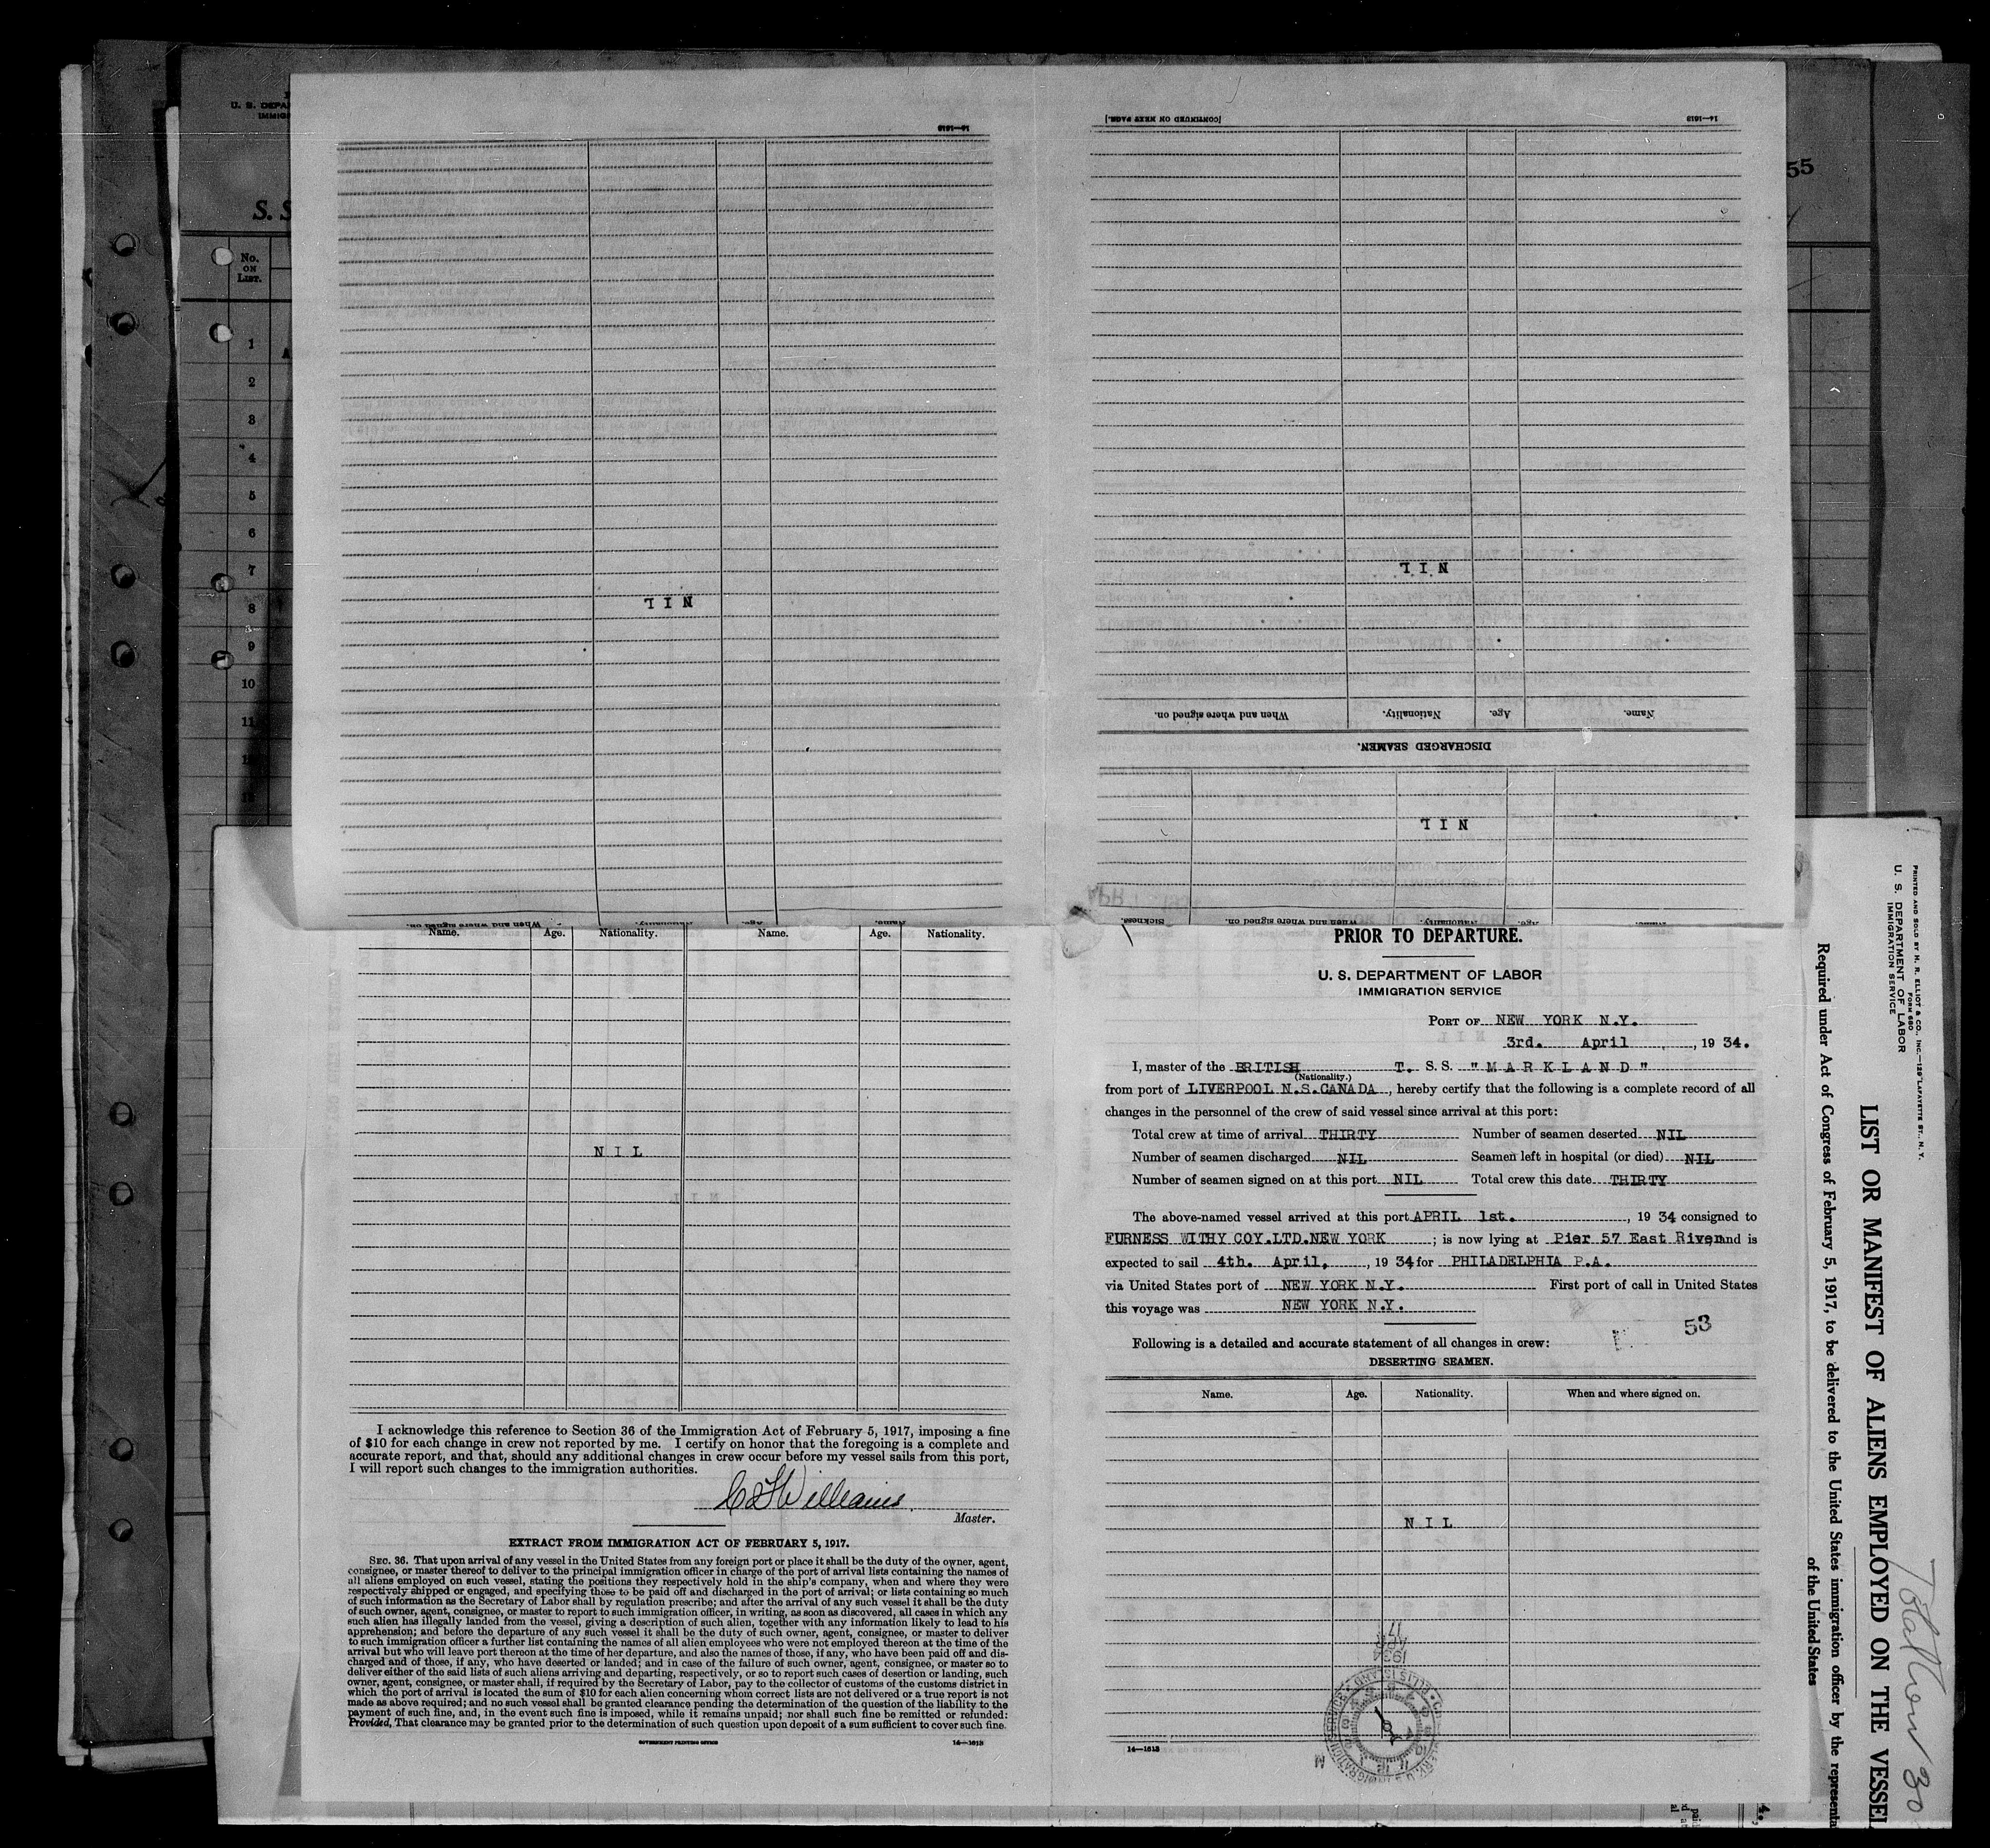 U. S. DEPA
IMMIG
S. S
No.
ON
LIST.
1
2
3
4
5
6
7
8
9
10
11
12
13
55
14—1613
NIL
When and where signed on.
Nationality.
Age.
Name.
[CONTINUED ON NEXT PAGE.]
14—1613
NIL
When and where signed on. Nationality. Age. Name.
DISCHARGED SEAMEN.
NIL
Sickness. When and where signed on. Nationality. Age. Name.
Name. Age. Nationality. Name. Age. Nationality.
NIL
I acknowledge this reference to Section 36 of the Immigration Act of February 5, 1917, imposing a fine
of $10 for each change in crew not reported by me. I certify on honor that the foregoing is a complete and
accurate report, and that, should any additional changes in crew occur before my vessel sails from this port,
I will report such changes to the immigration authorities.
Williams
Master.
EXTRACT FROM IMMIGRATION ACT OF FEBRUARY 5, 1917.
SEC. 36. That upon arrival of any vessel in the United States from any foreign port or place it shall be the duty of the owner, agent,
consignee, or master thereof to deliver to the principal immigration officer in charge of the port of arrival lists containing the names of
all aliens employed on such vessel, stating the positions they respectively hold in the ship's company, when and where they were
respectively shipped or engaged, and specifying those to be paid off and discharged in the port of arrival; or lists containing so much
of such information as the Secretary of Labor shall by regulation prescribe; and after the arrival of any such vessel it shall be the duty
of such owner, agent, consignee, or master to report to such immigration officer, in writing, as soon as discovered, all cases in which any
such alien has illegally landed from the vessel, giving a description of such alien, together with any information likely to lead to his
apprehension; and before the departure of any such vessel it shall be the duty of such owner, agent, consignee, or master to deliver
to such immigration officer a further list containing the names of all alien employees who were not employed thereon at the time of the
arrival but who will leave port thereon at the time of her departure, and also the names of those, if any, who have been paid off and dis-
charged and of those, if any, who have deserted or landed; and in case of the failure of such owner, agent, consignee, or master so to
deliver either of the said lists of such aliens arriving and departing, respectively, or so to report such cases of desertion or landing, such
owner, agent, consignee, or master shall, if required by the Secretary of Labor, pay to the collector of customs of the customs district in
which the port of arrival is located the sum of $10 for each alien concerning whom correct lists are not delivered or a true report is not
made as above required; and no such vessel shall be granted clearance pending the determination of the question of the liability to the
payment of such fine, and, in the event such fine is imposed, while it remains unpaid; nor shall such fine be remitted or refunded:
Provided, That clearance may be granted prior to the determination of such question upon deposit of a sum sufficient to cover such fine.
GOVERNMENT PRINTING OFFICE
14—1613
PRIOR TO DEPARTURE.
U. S. DEPARTMENT OF LABOR
IMMIGRATION SERVICE
PORT OF NEW YORK N.Y.
3rd. April, 1934.
I, master of the BRITISH T. S.S. "MARKLAND"
(Nationality.)
from port of LIVERPOOL N.S.CANADA, hereby certify that the following is a complete record of all
changes in the personnel of the crew of said vessel since arrival at this port:
Total crew at time of arrival THIRTY Number of seamen deserted NIL
Number of seamen discharged NIL Seamen left in hospital (or died) NIL
Number of seamen signed on at this port NIL Total crew this date THIRTY
The above-named vessel arrived at this port APRIL 1st., 1934 consigned to
FURNESS WITHY COY.LTD.NEW YORK; is now lying at Pier 57 East River and is
expected to sail 4th. April, 1934 for PHILADELPHIA P.A.
via United States port of NEW YORK N.Y. First port of call in United States
this voyage was NEW YORK N.Y.
53
Following is a detailed and accurate statement of all changes in crew:
DESERTING SEAMEN.
Name. Age. Nationality. When and where signed on.
NIL
1934
APR
17
14—1613
PRINTED AND SOLD BY H. R. ELLIOT & CO., INC.—129 LAFAYETTE ST., N. Y.
FORM 680
U. S. DEPARTMENT OF LABOR
IMMIGRATION SERVICE
LIST OR MANIFEST OF ALIENS EMPLOYED ON THE VESSEL
Required under Act of Congress of February 5, 1917, to be delivered to the United States immigration officer by the representa
of the United States
Total Crew 30